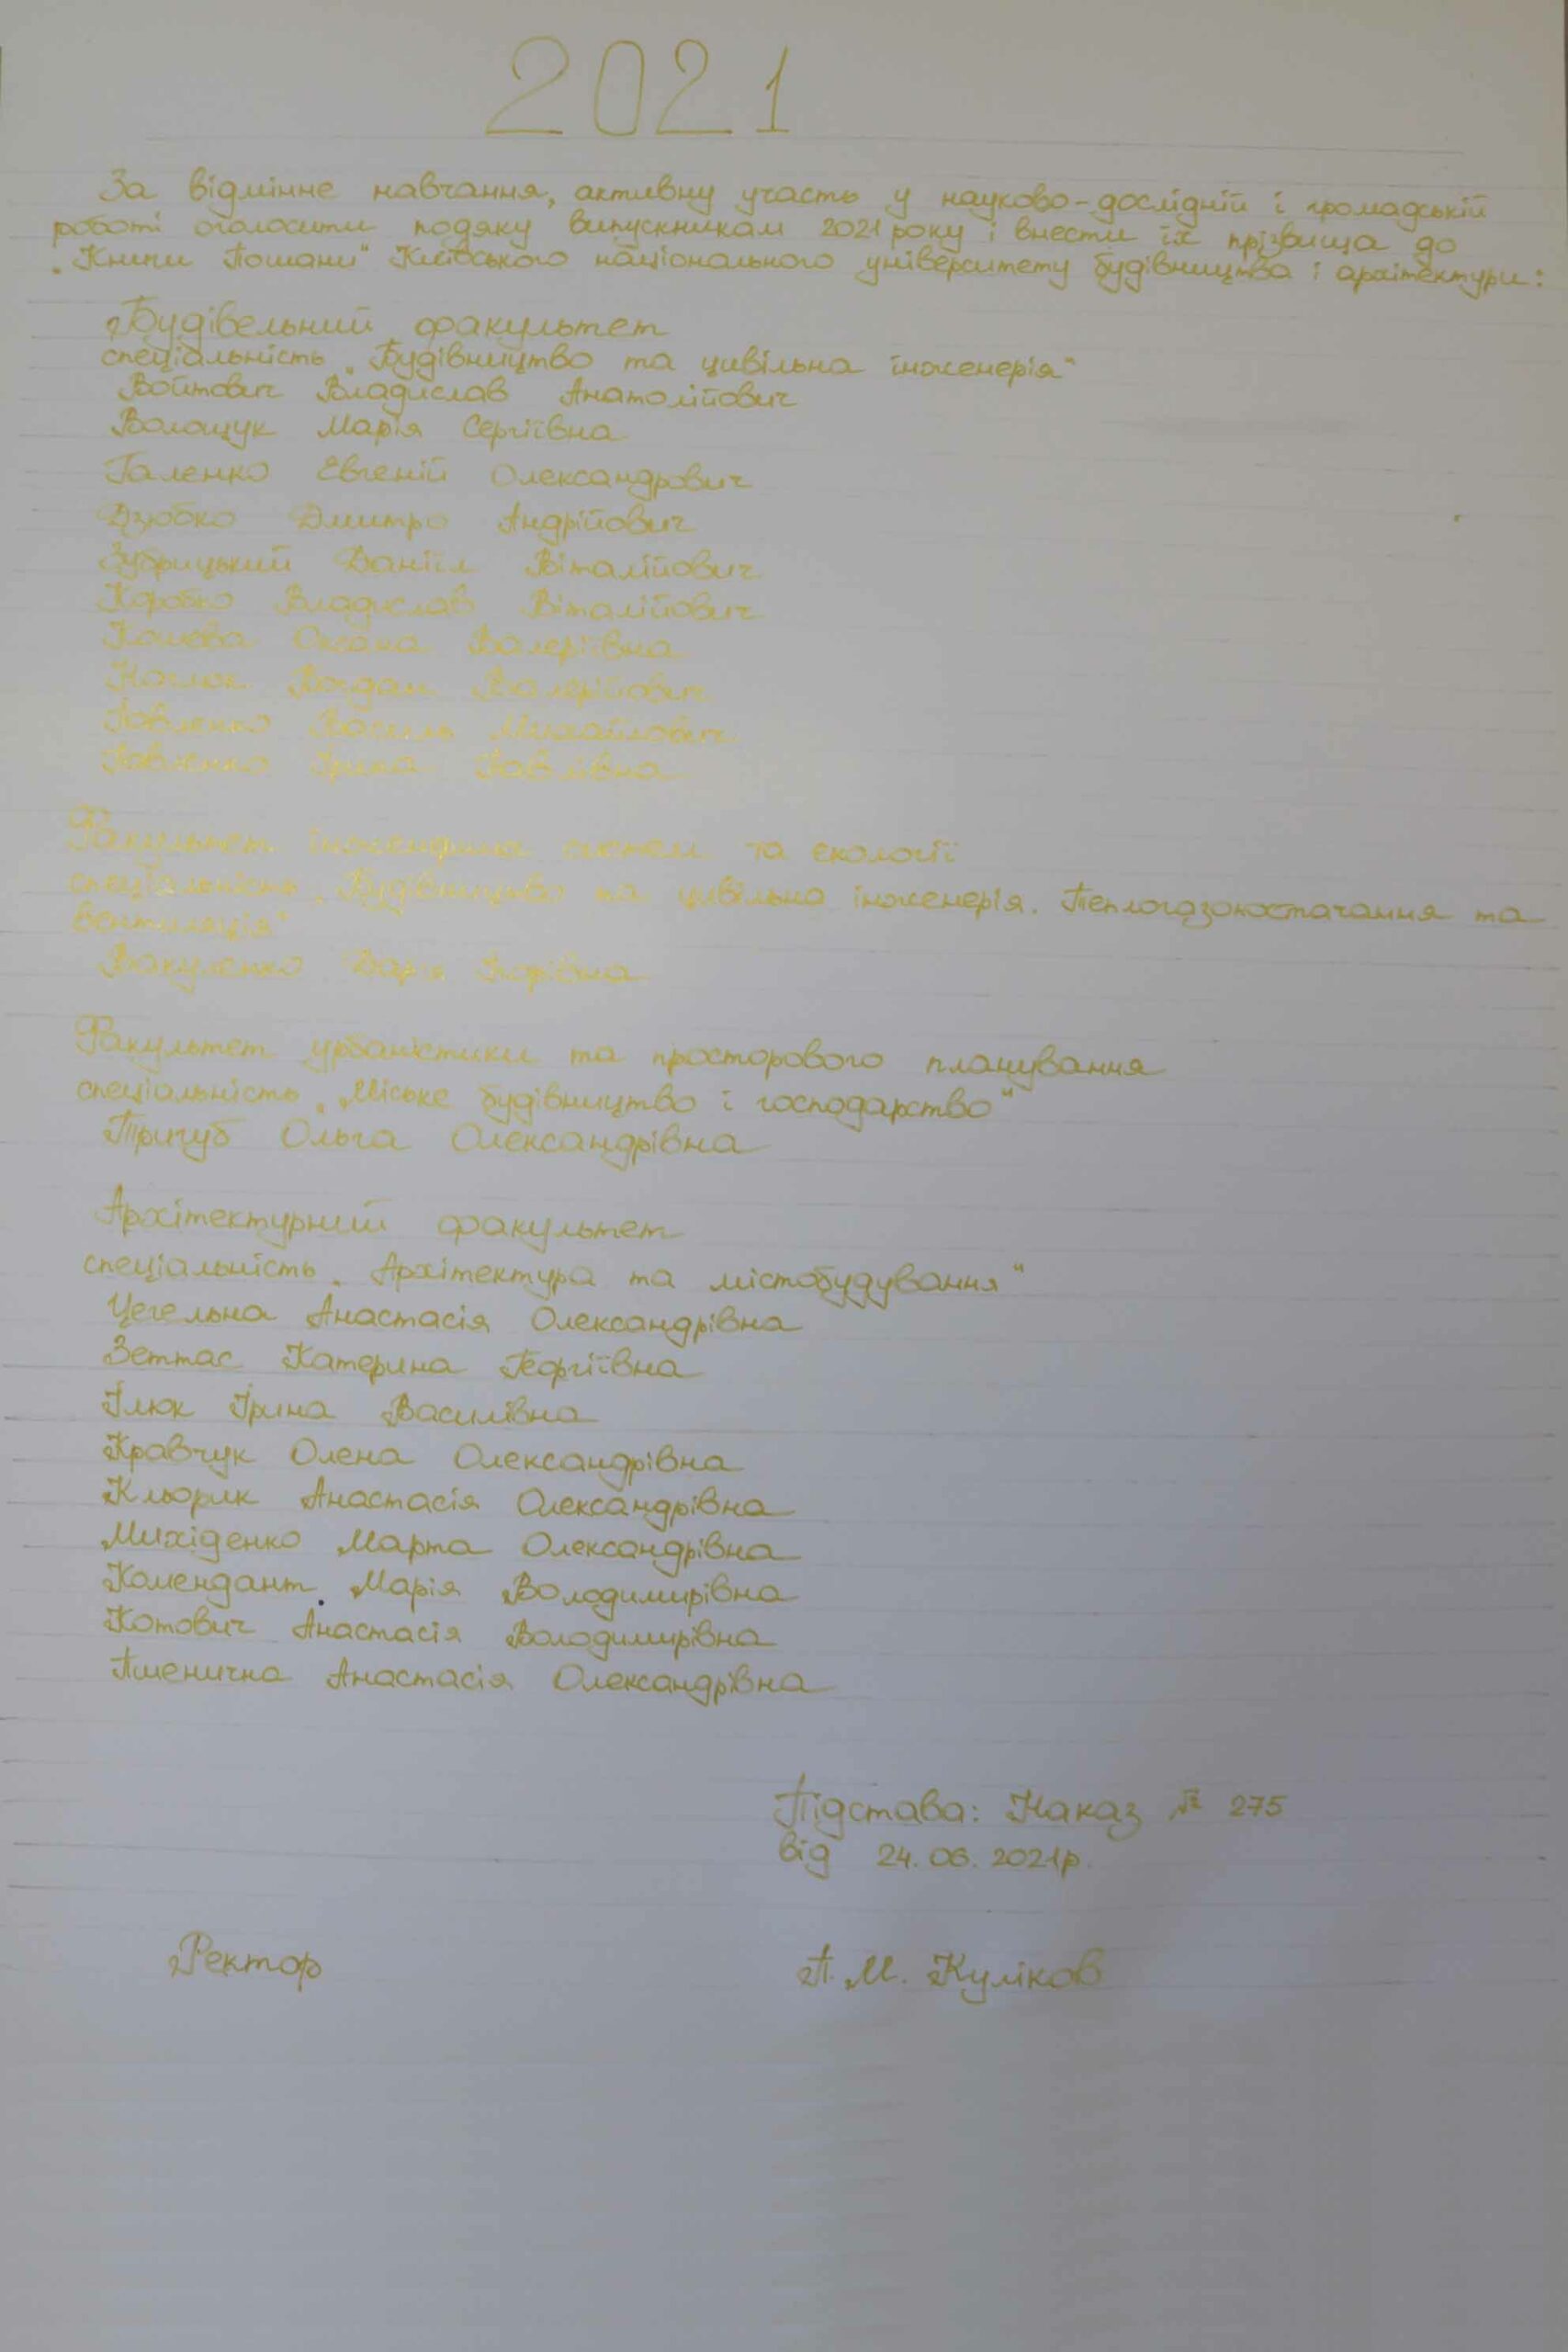 2021
За відмінне навчання, активну участь у науково-дослідній і громадській
роботі оголосити подяку випускникам 2021 року і внести їх прізвища до
„Книги Пошани“ Київського національного університету будівництва і архітектури:
Будівельний факультет
спеціальність „Будівництво та цивільна інженерія“
Войтович Владислав Анатолійович
Волощук Марія Сергіївна
Галенко Евгеній Олександрович
Дзюбко Дмитро Андрійович
Зубрицький Данііл Віталійович
Коробко Владислав Віталійович
Кошева Оксана Валеріївна
Богдан Валерійович
Павленко Василь Михайлович
Павленко Ірина Павлівна
Факультет інженерних систем та екології
спеціальність „Будівництво та цивільна інженерія. Теплогазопостачання та
вентиляція“
Вакуленко Дар'я Ігорівна
Факультет урбаністики та просторового планування
спеціальність „Міське будівництво і господарство“
Тригуб Ольга Олександрівна
Архітектурний факультет
спеціальність „Архітектура та містобудування“
Цегельна Анастасія Олександрівна
Зеттас Катерина Георгіївна
Ілюк Ірина Василівна
Кравчук Олена Олександрівна
Кльорик Анастасія Олександрівна
Михіденко Марта Олександрівна
Комендант Марія Володимирівна
Котович Анастасія Володимирівна
Пшенична Анастасія Олександрівна
Підстава: Наказ № 275
від 24.06.2021р.
Ректор П.М. Куліков